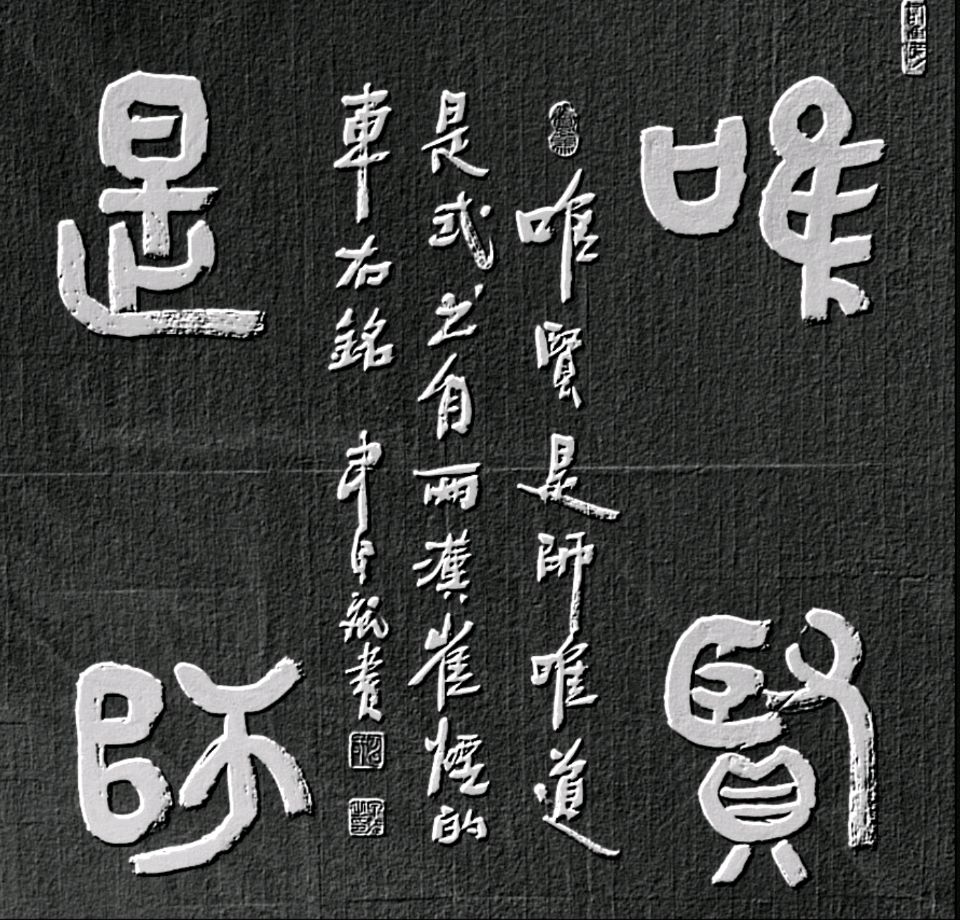 唯賢
是師
唯賢是師唯道
是式出自兩漢崔煙的
車右銘 書